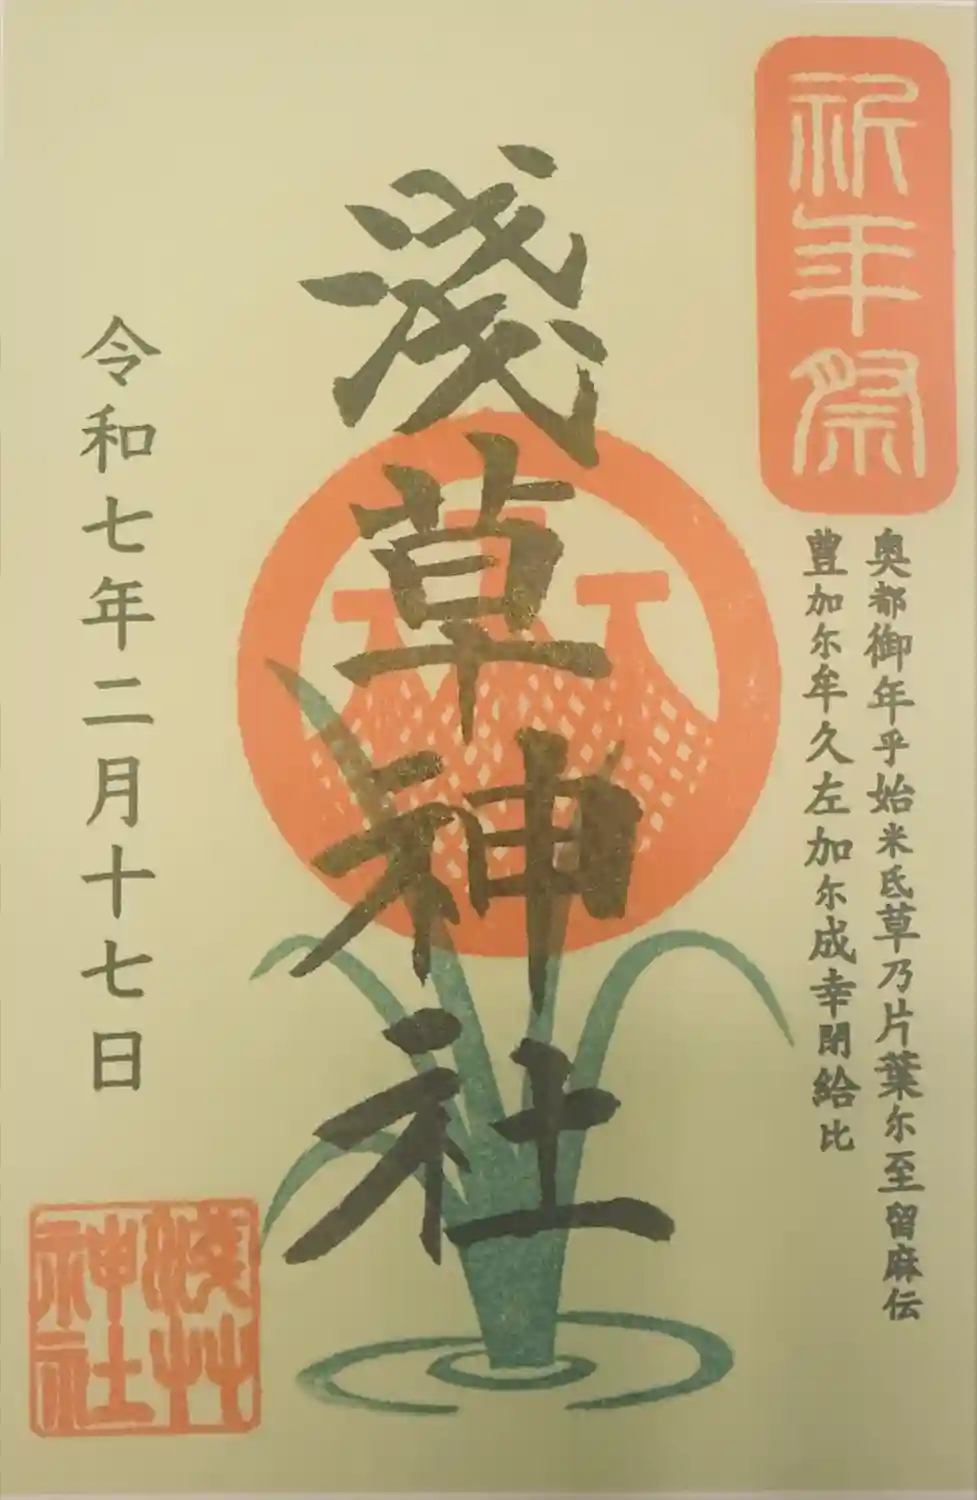 祈年祭
奥都御年乎始米氐草乃片葉尓至留麻伝
豊加尓牟久左加尓成幸閉給比
淺草神社
令和七年二月十七日
淺艸
神社